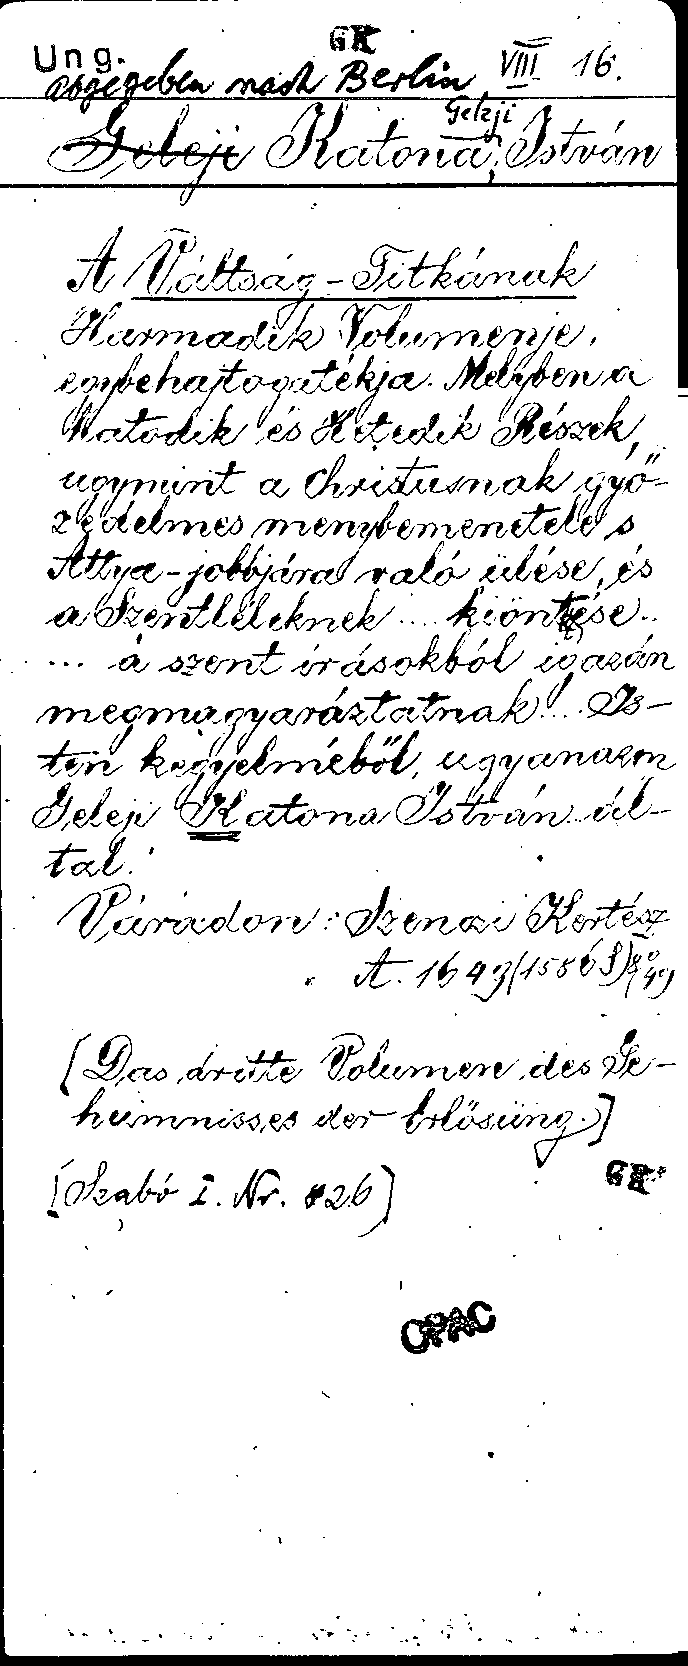 GK
Ung. VIII 16.
abgegeben nach Berlin
Geleji
Geleji Katona, István
A Váltság-Titkának
Harmadik Volumenje,
egybehajtogatékja. Melyben a
hatodik és Hetedik Részek,
ugymint a Christusnak győ-
zedelmes menybemenetele s
Attya-jobbjára való ülése, és
a Szentléleknek .... kiöntése..
... a szent írásokból igazán
megmagyaráztatnak .... Is-
ten kegyelméből, ugyanazon
Geleji Katona István ál-
tal.
Váradon: Szenczi Kertész
A. 1649 (1586 S) 8°
[Das dritte Volumen des Ge-
heimnisses der Erlösung.]
[Szabó I. Nr. 826]
GK
OPAC